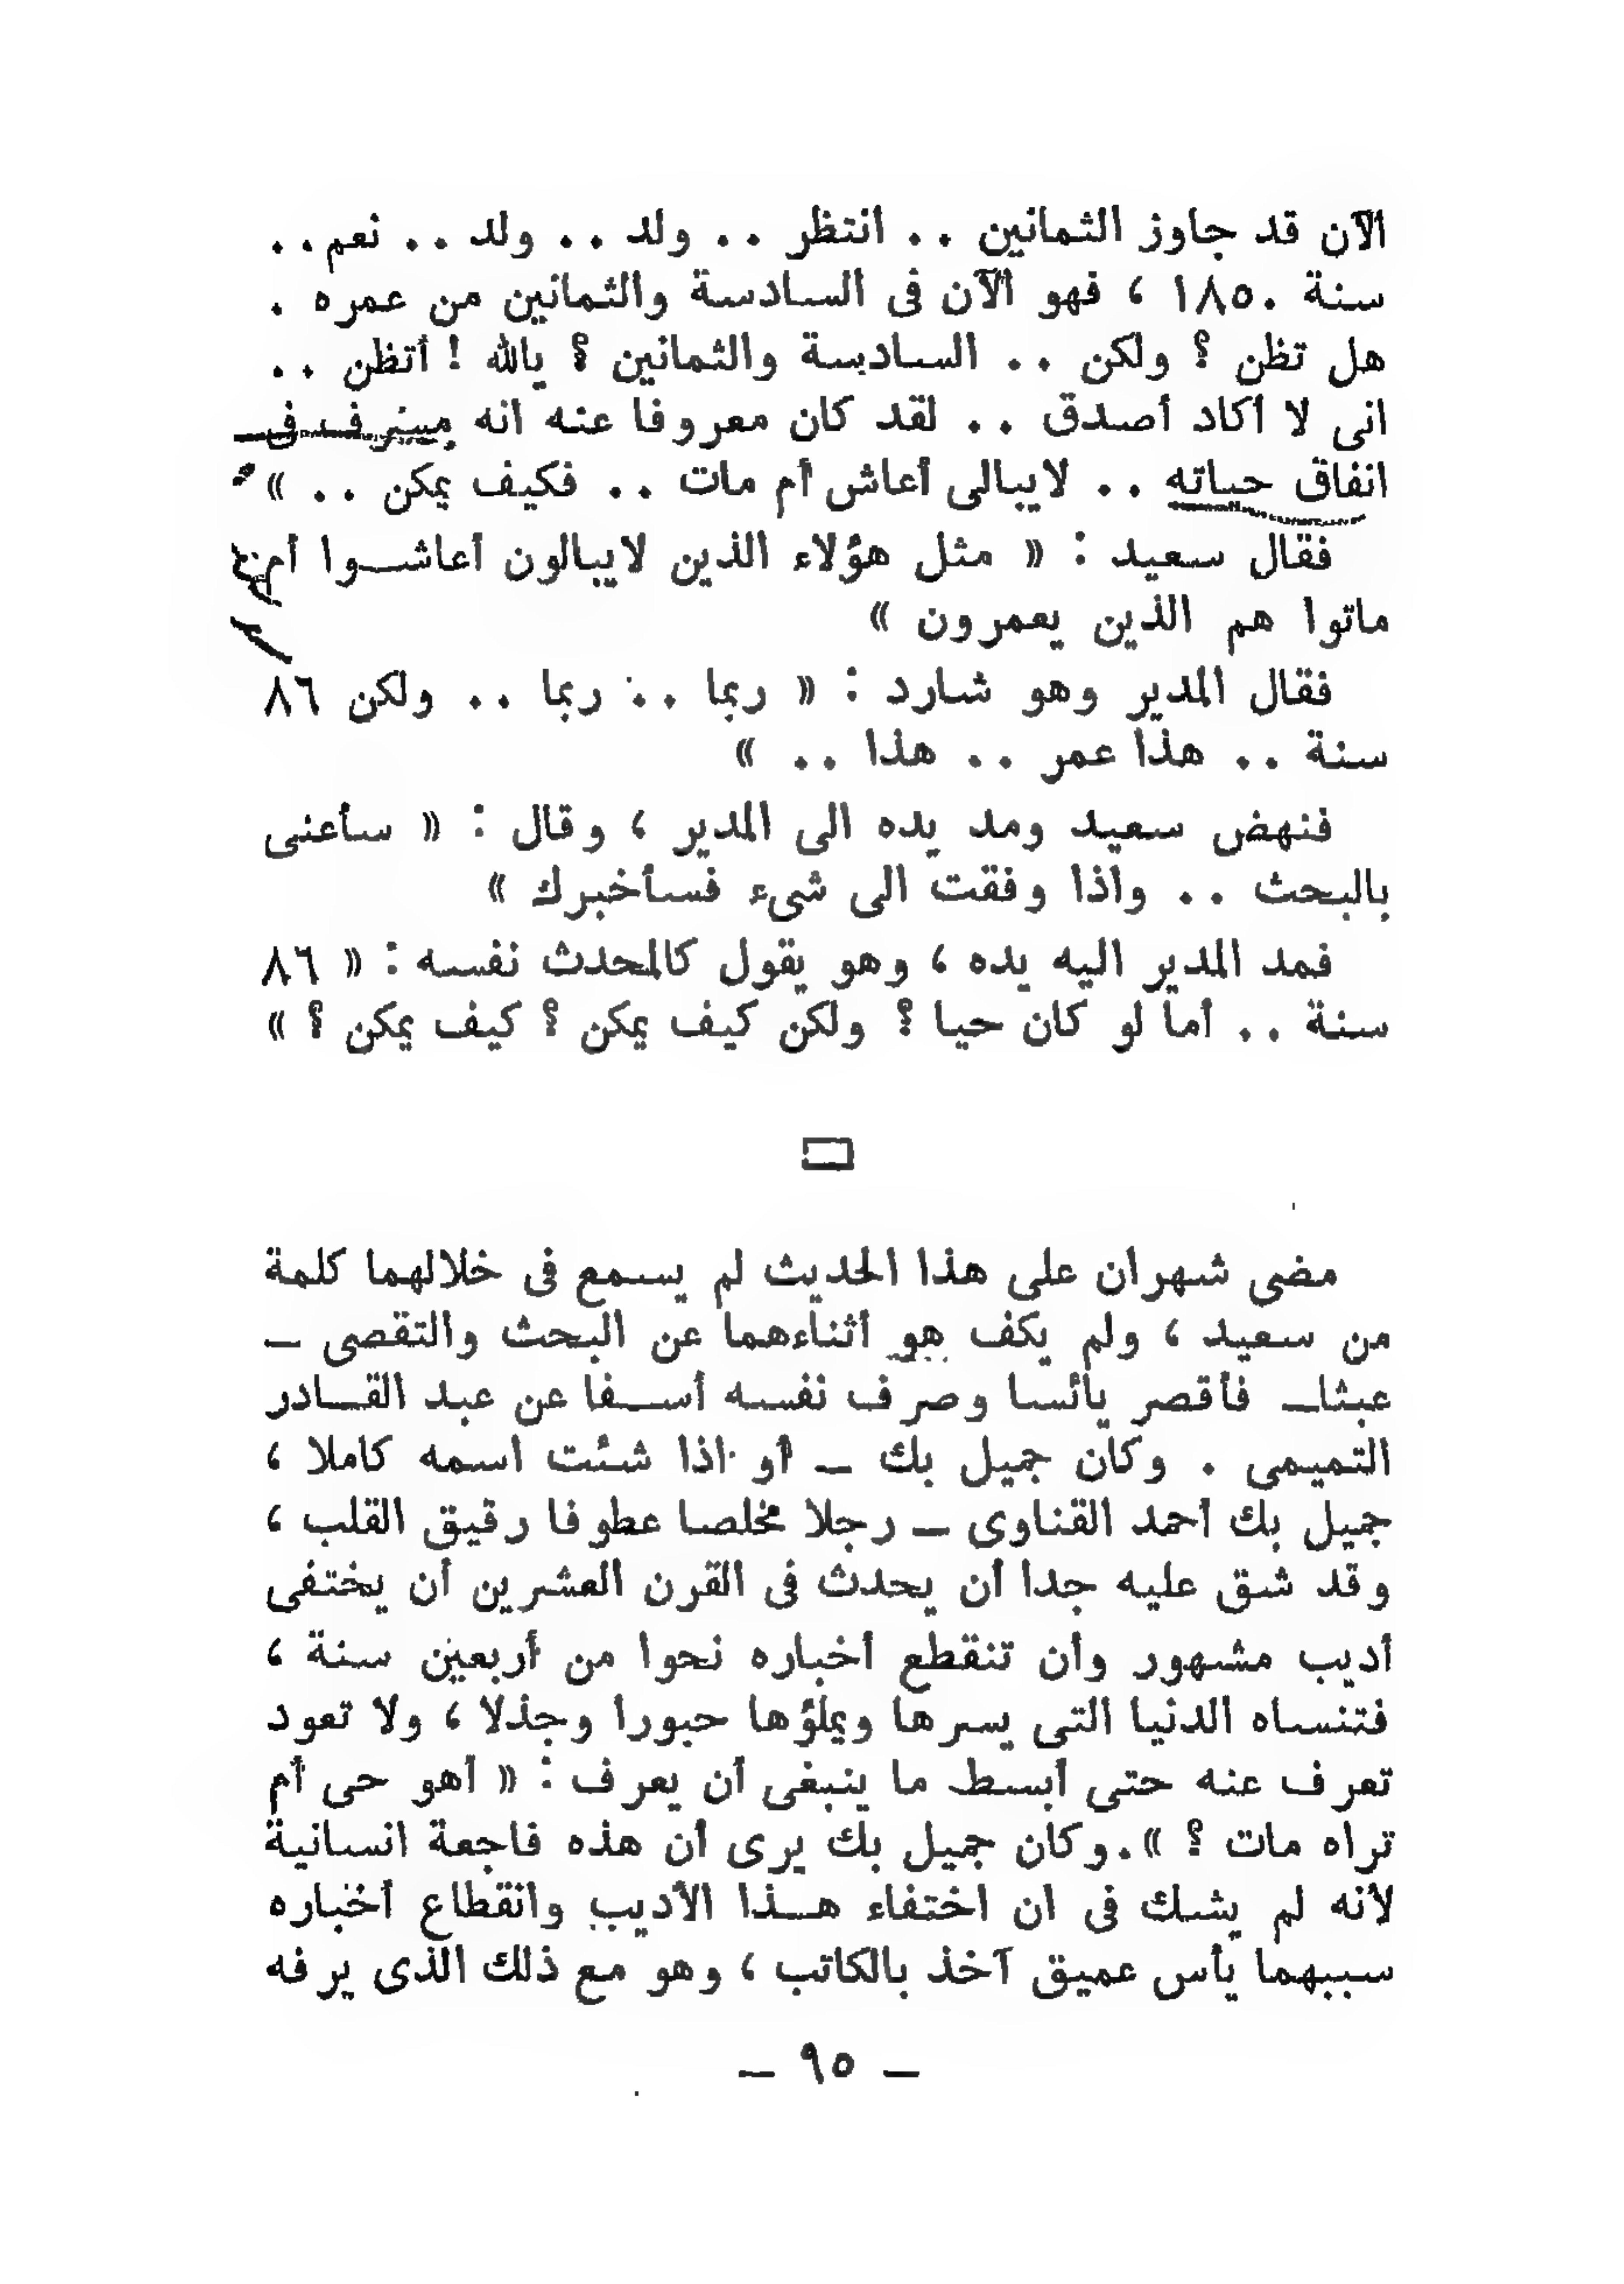 الآن قد جاوز الثمانين .. انتظر .. ولد .. ولد .. نعم ..
سنة ١٨٥٠ ، فهو الآن فى السادسة والثمانين من عمره .
هل تظن ؟ ولكن .. السادسة والثمانين ؟ يالله ! أتظن ..
انى لا أكاد أصدق .. لقد كان معروفا عنه انه مسرف فى
انفاق حياته .. لايبالى أعاش أم مات .. فكيف يمكن .. »
فقال سعيد : « مثل هؤلاء الذين لايبالون أعاشـوا أم
ماتوا هم الذين يعمرون »
فقال المدير وهو شارد : « ربما .. ربما .. ولكن ٨٦
سنة .. هذا عمر .. هذا .. »
فنهض سعيد ومد يده الى المدير ، وقال : « سأعنى
بالبحث .. واذا وفقت الى شىء فسأخبرك »
فمد المدير اليه يده ، وهو يقول كالمحدث نفسه : « ٨٦
سنة .. أما لو كان حيا ؟ ولكن كيف يمكن ؟ كيف يمكن ؟ »
مضى شهران على هذا الحديث لم يسمع فى خلالهما كلمة
من سعيد ، ولم يكف هو أثناءهما عن البحث والتقصى ـ
عبثا ـ فأقصر يائسا وصرف نفسه أسـفا عن عبد القـادر
التميمى . وكان جميل بك ـ أو اذا شئت اسمه كاملا ،
جميل بك أحمد القناوى ـ رجلا مخلصا عطوفا رقيق القلب ،
وقد شق عليه جدا أن يحدث فى القرن العشرين أن يختفى
أديب مشهور وأن تنقطع أخباره نحوا من أربعين سنة ،
فتنساه الدنيا التى يسرها ويملؤها حبورا وجذلا ، ولا تعود
تعرف عنه حتى أبسط ما ينبغى أن يعرف : « أهو حى أم
تراه مات ؟ ». وكان جميل بك يرى أن هذه فاجعة انسانية
لأنه لم يشك فى ان اختفاء هـذا الأديب وانقطاع أخباره
سببهما يأس عميق آخذ بالكاتب ، وهو مع ذلك الذى يرفه
ـ ٩٥ ـ